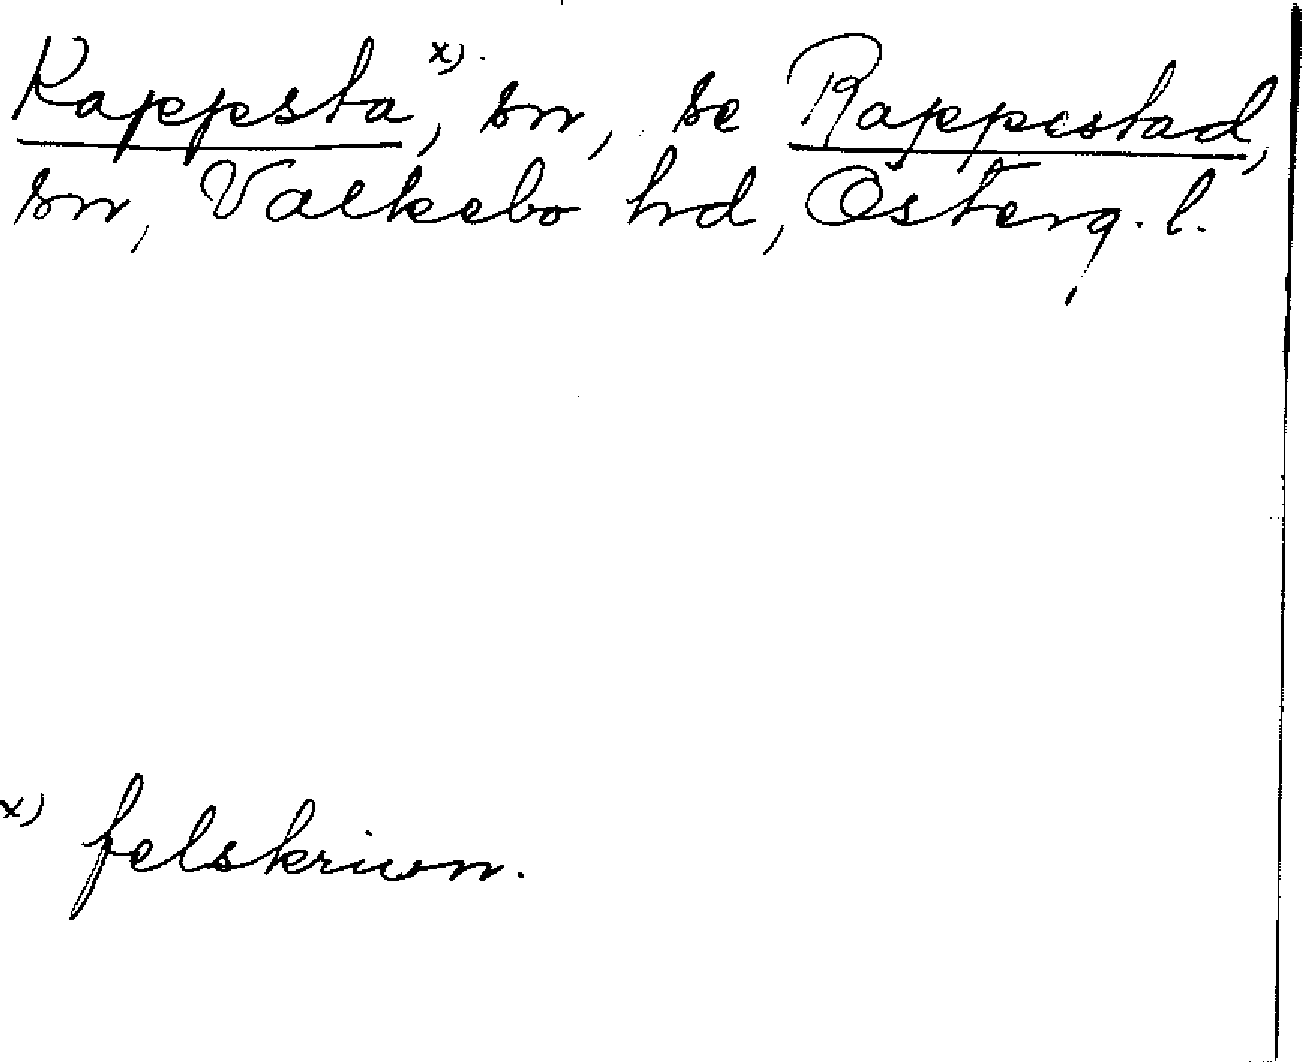 Rappsta x), sn, se Rappestad,
sn, Valkebo hd, Österg. l.
x) felskrivn.